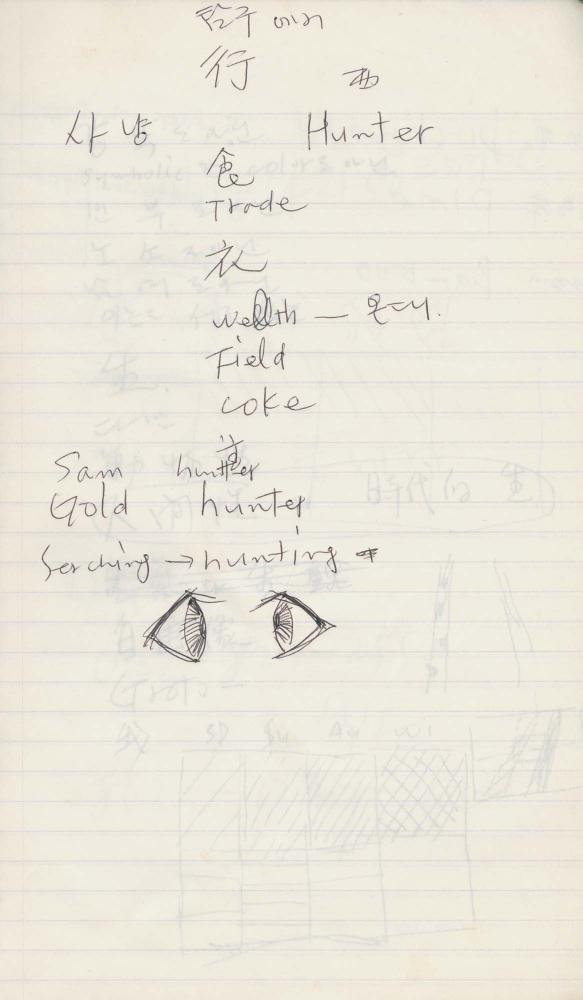 탐구 에서
行 西
사냥 Hunter
食
Trade
衣
wealth —
Field
coke
Sam hunter
Gold hunter
Serching → hunting